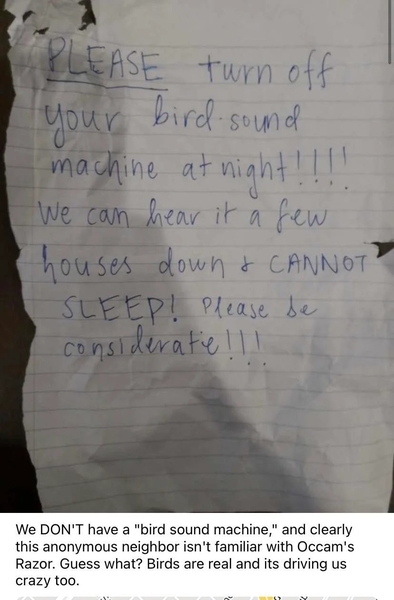 PLEASE turn off
your bird sound
machine at night!!!!
We can hear it a few
houses down & CANNOT
SLEEP! Please be
considerate!!!
We DON'T have a "bird sound machine," and clearly
this anonymous neighbor isn't familiar with Occam's
Razor. Guess what? Birds are real and its driving us
crazy too.